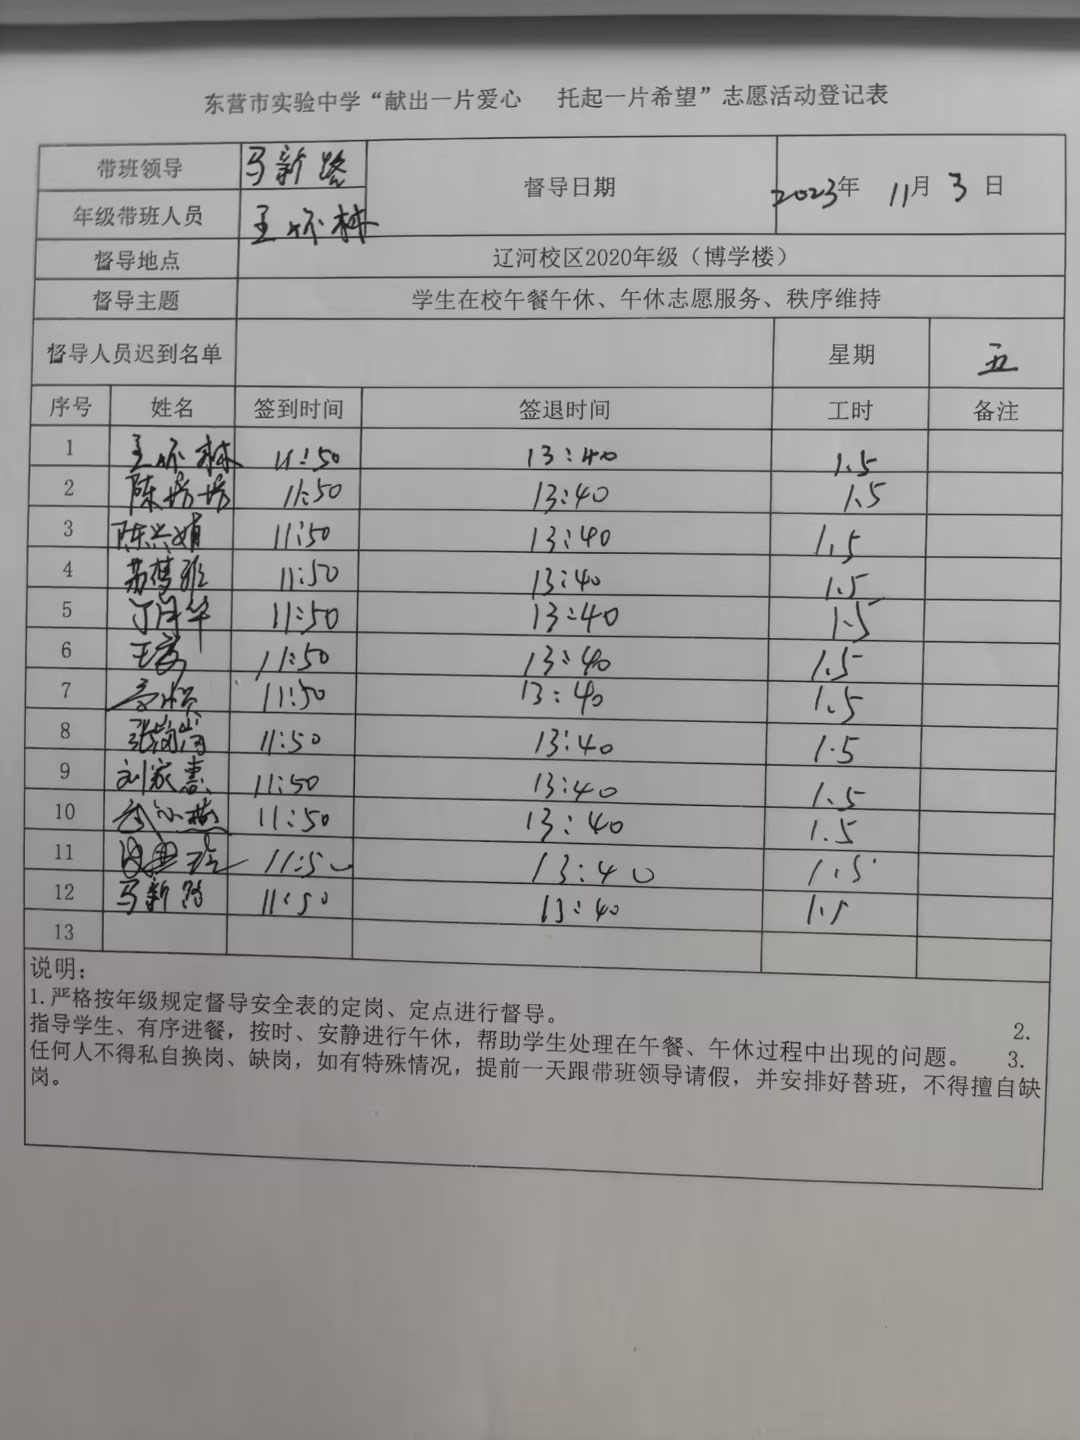 东营市实验中学“献出一片爱心 托起一片希望”志愿活动登记表
带班领导 马新路 督导日期 2023年 11月 3日
年级带班人员 王怀林
督导地点 辽河校区2020年级（博学楼）
督导主题 学生在校午餐午休、午休志愿服务、秩序维持
督导人员迟到名单 星期 五
序号 姓名 签到时间 签退时间 工时 备注
1 王怀林 11:50 13:40 1.5
2 陈 11:50 13:40 1.5
3 陈兴娟 11:50 13:40 1.5
4 苏梦雅 11:50 13:40 1.5
5 丁月华 11:50 13:40 1.5
6 王 11:50 13:40 1.5
7 11:50 13:40 1.5
8 张 11:50 13:40 1.5
9 刘家惠 11:50 13:40 1.5
10 11:50 13:40 1.5
11 11:50 13:40 1.5
12 马新路 11:50 13:40 1.5
13
说明：
1.严格按年级规定督导安全表的定岗、定点进行督导。 2.
指导学生、有序进餐，按时、安静进行午休，帮助学生处理在午餐、午休过程中出现的问题。 3.
任何人不得私自换岗、缺岗，如有特殊情况，提前一天跟带班领导请假，并安排好替班，不得擅自缺
岗。